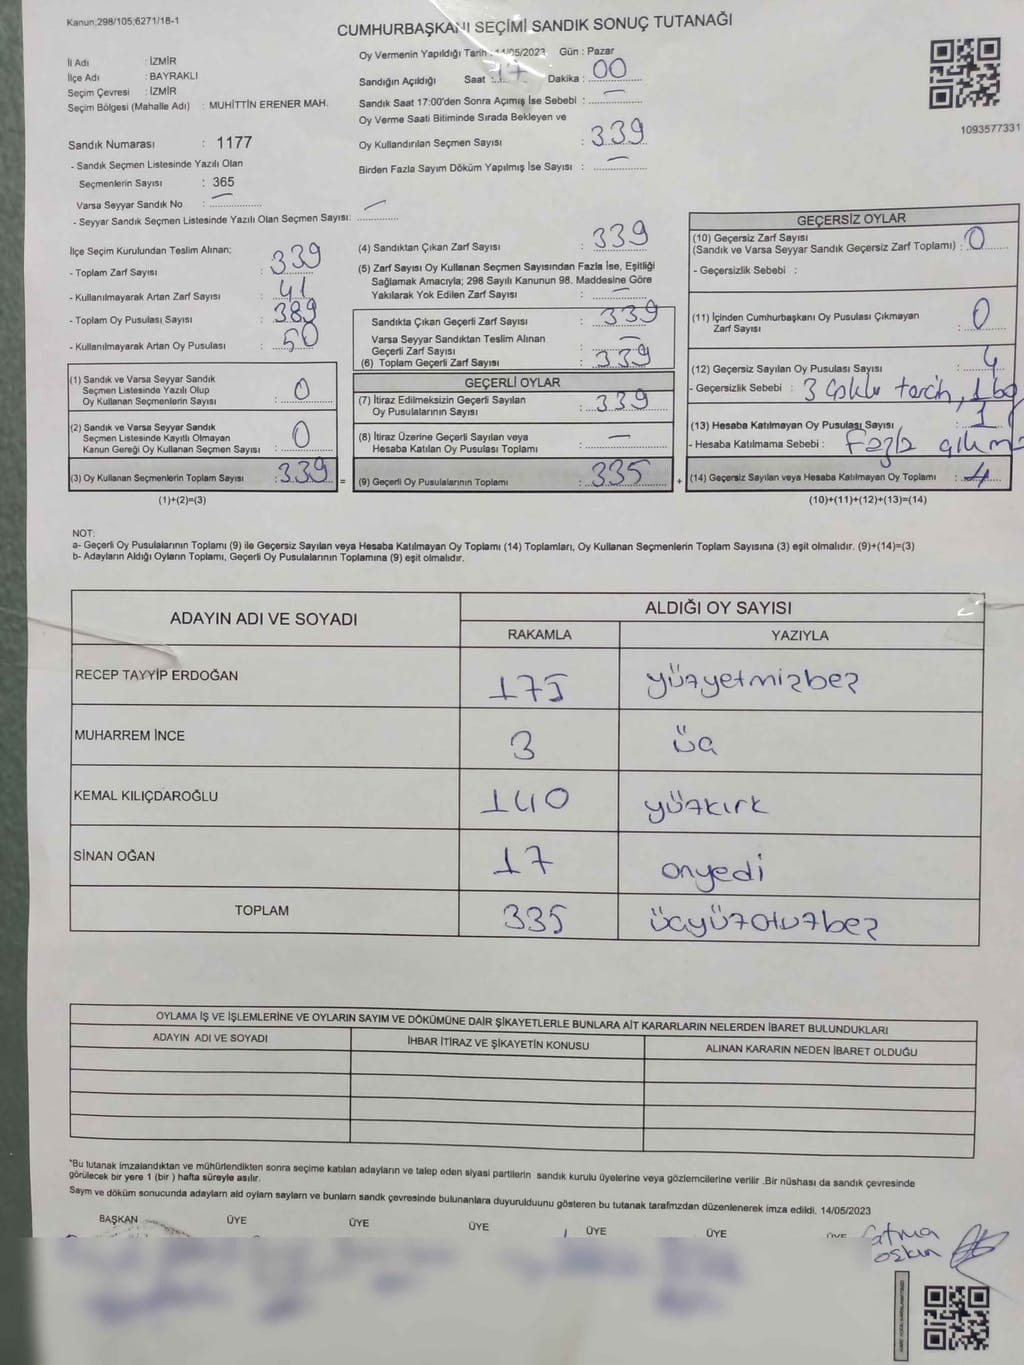 Kanun;298/105;6271/18-1
CUMHURBAŞKANI SEÇİMİ SANDIK SONUÇ TUTANAĞI
Oy Vermenin Yapıldığı Tarih : 14/05/2023 Gün : Pazar
İl Adı : İZMİR
İlçe Adı : BAYRAKLI
Seçim Çevresi : İZMİR
Seçim Bölgesi (Mahalle Adı) : MUHİTTİN ERENER MAH.
Sandığın Açıldığı Saat : 17 Dakika : 00
Sandık Saat 17:00'den Sonra Açımış İse Sebebi : —
Oy Verme Saati Bitiminde Sırada Bekleyen ve
Oy Kullandırılan Seçmen Sayısı : 339
Birden Fazla Sayım Döküm Yapılmış İse Sayısı : —
1093577331
Sandık Numarası : 1177
- Sandık Seçmen Listesinde Yazılı Olan
Seçmenlerin Sayısı : 365
Varsa Seyyar Sandık No : —
- Seyyar Sandık Seçmen Listesinde Yazılı Olan Seçmen Sayısı: —
İlçe Seçim Kurulundan Teslim Alınan;
- Toplam Zarf Sayısı : 339
- Kullanılmayarak Artan Zarf Sayısı : 41
- Toplam Oy Pusulası Sayısı : 389
- Kullanılmayarak Artan Oy Pusulası : 50
(1) Sandık ve Varsa Seyyar Sandık
Seçmen Listesinde Yazılı Olup
Oy Kullanan Seçmenlerin Sayısı : 0
(2) Sandık ve Varsa Seyyar Sandık
Seçmen Listesinde Kayıtlı Olmayan
Kanun Gereği Oy Kullanan Seçmen Sayısı : 0
(3) Oy Kullanan Seçmenlerin Toplam Sayısı : 339 =
(1)+(2)=(3)
(4) Sandıktan Çıkan Zarf Sayısı : 339
(5) Zarf Sayısı Oy Kullanan Seçmen Sayısından Fazla İse, Eşitliği
Sağlamak Amacıyla; 298 Sayılı Kanunun 98. Maddesine Göre
Yakılarak Yok Edilen Zarf Sayısı : —
Sandıkta Çıkan Geçerli Zarf Sayısı : 339
Varsa Seyyar Sandıktan Teslim Alınan
Geçerli Zarf Sayısı : —
(6) Toplam Geçerli Zarf Sayısı : 339
GEÇERLİ OYLAR
(7) İtiraz Edilmeksizin Geçerli Sayılan
Oy Pusulalarının Sayısı : 339
(8) İtiraz Üzerine Geçerli Sayılan veya
Hesaba Katılan Oy Pusulası Toplamı : —
(9) Geçerli Oy Pusulalarının Toplamı : 335 +
GEÇERSİZ OYLAR
(10) Geçersiz Zarf Sayısı
(Sandık ve Varsa Seyyar Sandık Geçersiz Zarf Toplamı) : 0
- Geçersizlik Sebebi :
(11) İçinden Cumhurbaşkanı Oy Pusulası Çıkmayan
Zarf Sayısı : 0
(12) Geçersiz Sayılan Oy Pusulası Sayısı : 4
- Geçersizlik Sebebi : 3 Çoklu tercih, 1 boş
(13) Hesaba Katılmayan Oy Pusulası Sayısı : 1
- Hesaba Katılmama Sebebi : Fazla
(14) Geçersiz Sayılan veya Hesaba Katılmayan Oy Toplamı : 4
(10)+(11)+(12)+(13)=(14)
NOT:
a- Geçerli Oy Pusulalarının Toplamı (9) ile Geçersiz Sayılan veya Hesaba Katılmayan Oy Toplamı (14) Toplamları, Oy Kullanan Seçmenlerin Toplam Sayısına (3) eşit olmalıdır. (9)+(14)=(3)
b- Adayların Aldığı Oyların Toplamı, Geçerli Oy Pusulalarının Toplamına (9) eşit olmalıdır.
ADAYIN ADI VE SOYADI ALDIĞI OY SAYISI
RAKAMLA YAZIYLA
RECEP TAYYİP ERDOĞAN 175 yüzyetmişbeş
MUHARREM İNCE 3 üç
KEMAL KILIÇDAROĞLU 140 yüzkırk
SİNAN OĞAN 17 onyedi
TOPLAM 335 üçyüzotuzbeş
OYLAMA İŞ VE İŞLEMLERİNE VE OYLARIN SAYIM VE DÖKÜMÜNE DAİR ŞİKAYETLERLE BUNLARA AİT KARARLARIN NELERDEN İBARET BULUNDUKLARI
ADAYIN ADI VE SOYADI İHBAR İTİRAZ VE ŞİKAYETİN KONUSU ALINAN KARARIN NEDEN İBARET OLDUĞU
*Bu tutanak imzalandıktan ve mühürlendikten sonra seçime katılan adayların ve talep eden siyasi partilerin sandık kurulu üyelerine veya gözlemcilerine verilir .Bir nüshası da sandık çevresinde
görülecek bir yere 1 (bir ) hafta süreyle asılır.
Saym ve döküm sonucunda adayların ald oylam sayları ve bunların sandk çevresinde bulunanlara duyurulduunu gösteren bu tutanak tarafmzdan düzenlenerek imza edildi. 14/05/2023
BAŞKAN ÜYE ÜYE ÜYE ÜYE ÜYE ÜYE